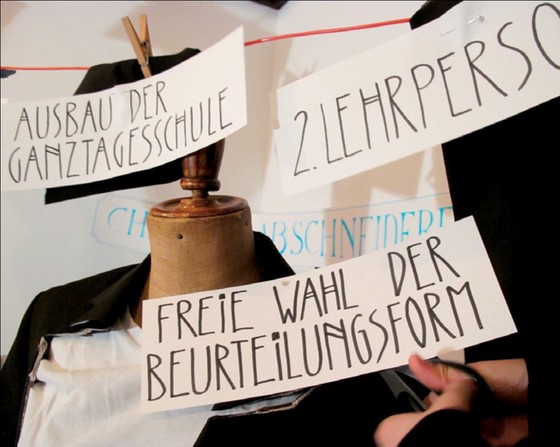 AUSBAU DER
GANZTAGESSCHULE
2. LEHRPERSO
CH ABSCHNEIDERE
FREIE WAHL DER
BEURTEILUNGSFORM